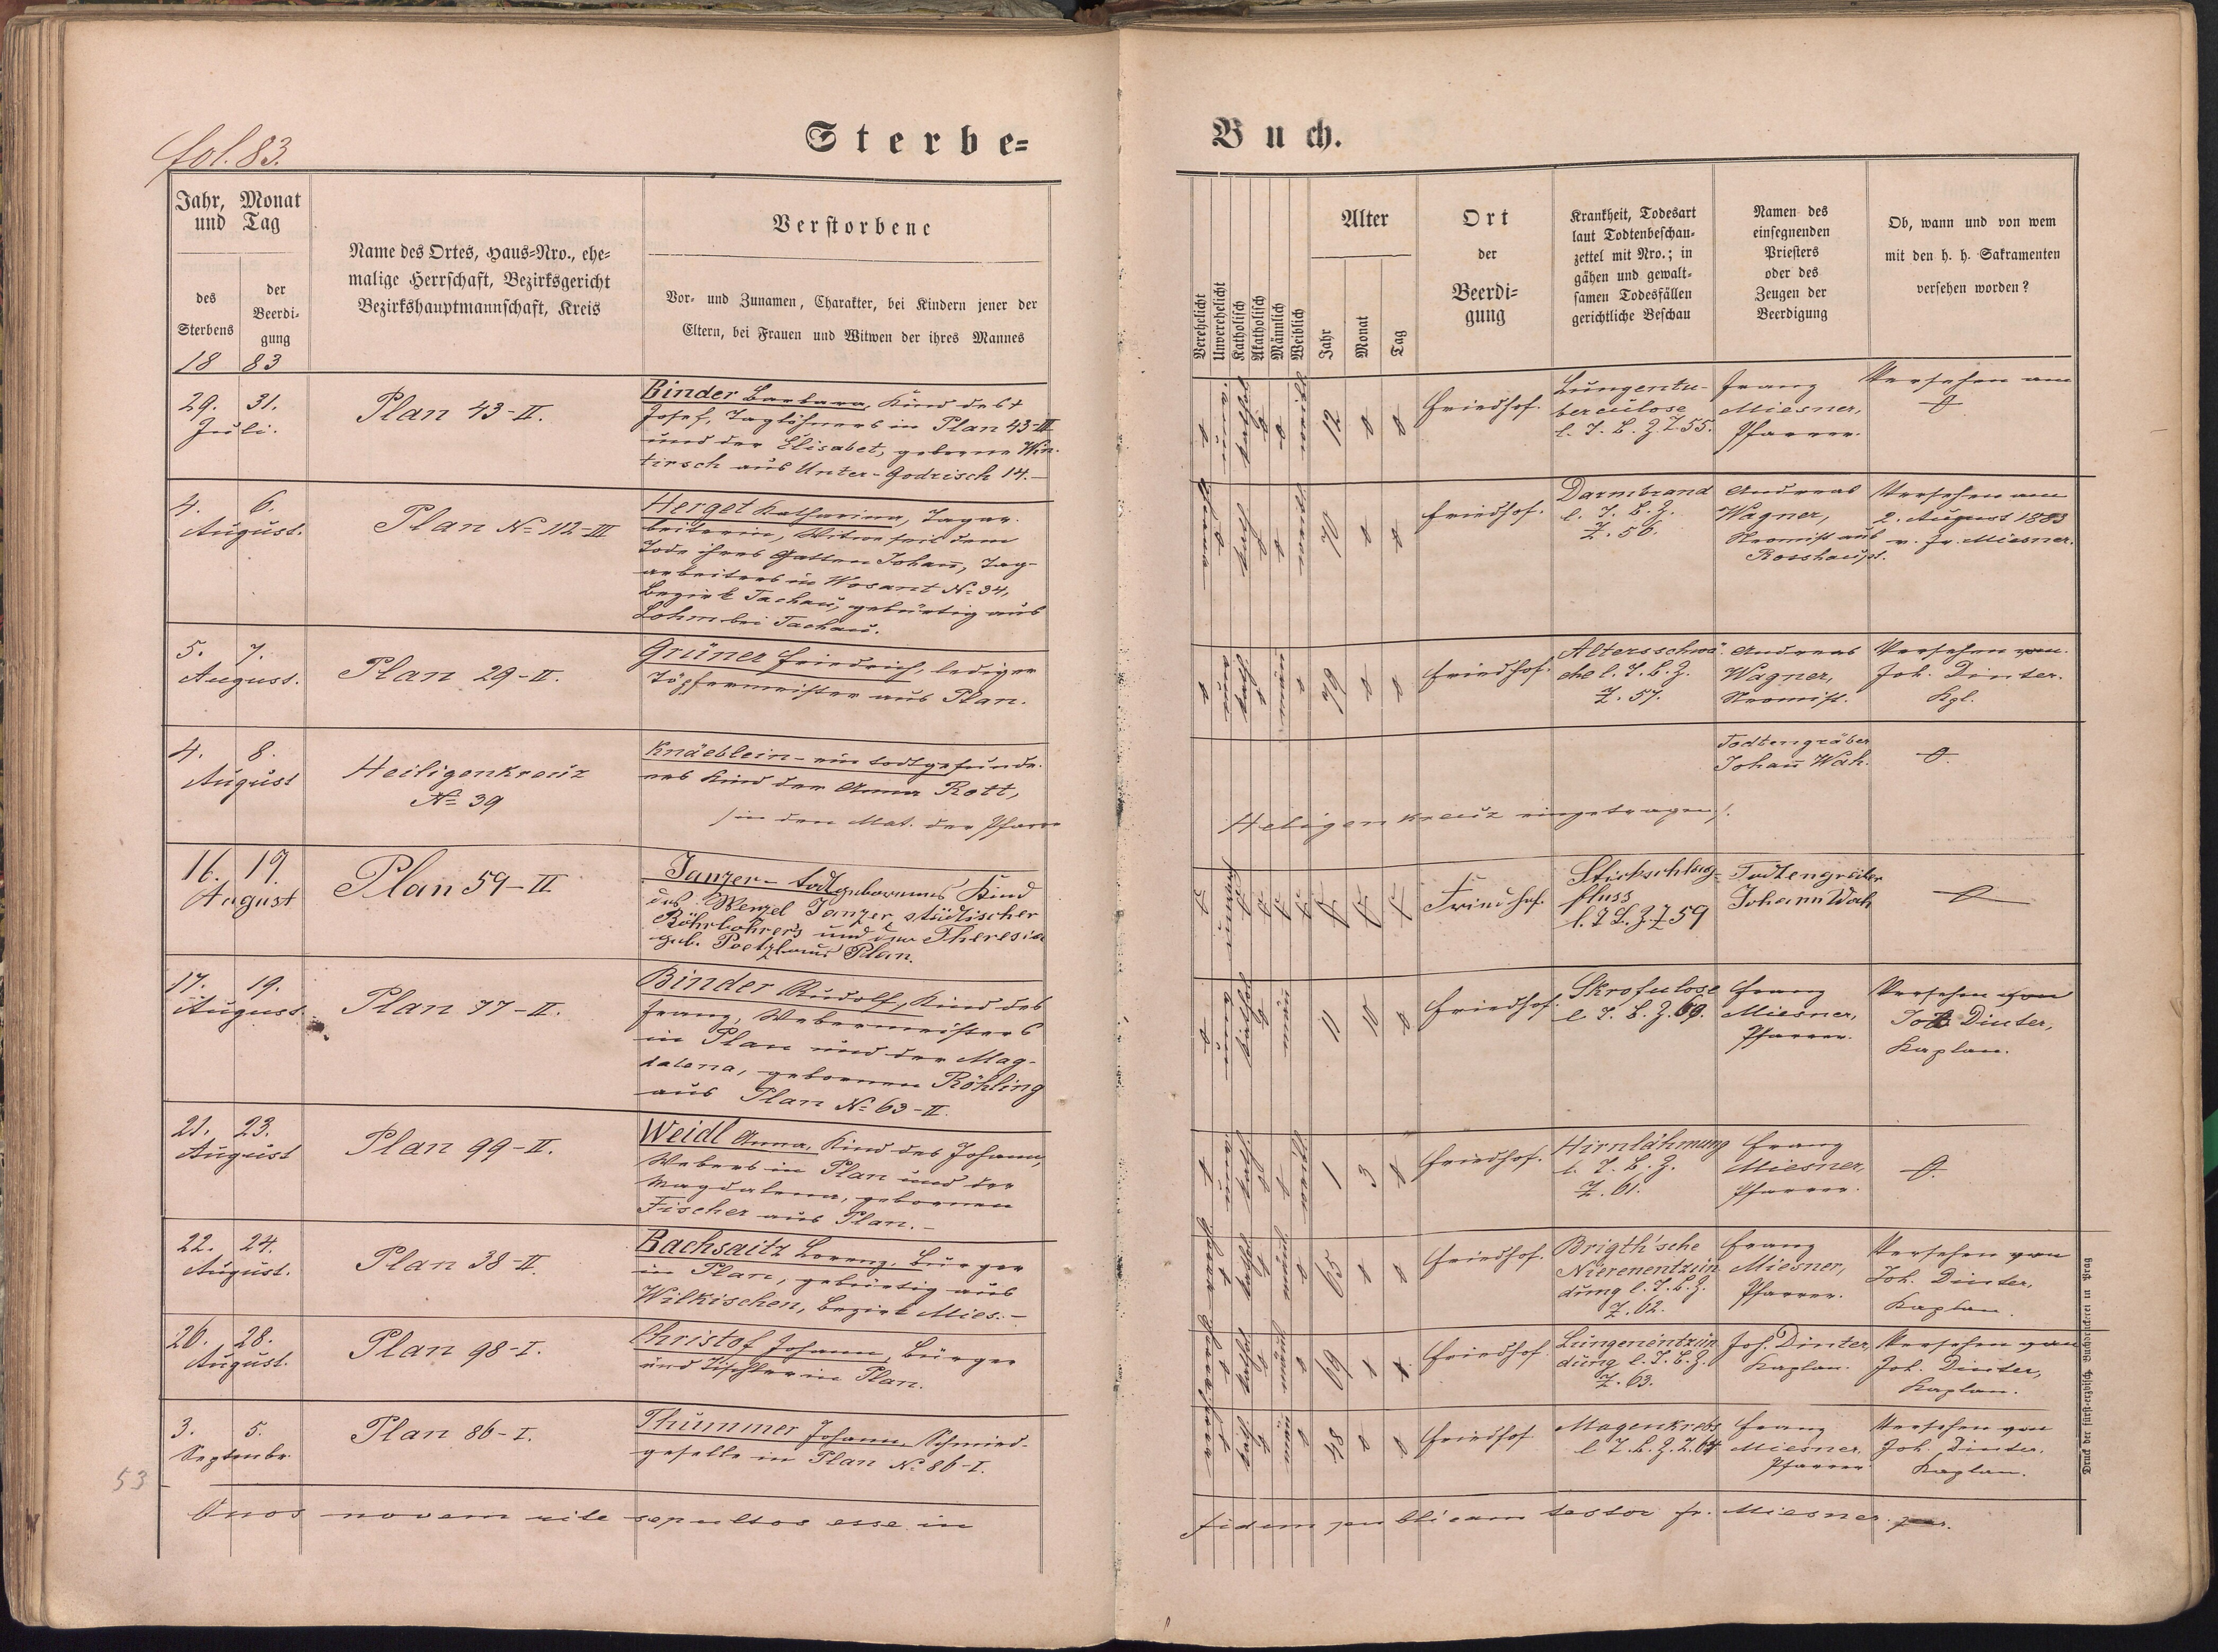 fol. 83.
Sterbe-
Buch.
Jahr, Monat
und Tag
des
Sterbens
der
Beerdi-
gung
18 83
Name des Ortes, Haus-Nro., ehe-
malige Herrschaft, Bezirksgericht
Bezirkshauptmannschaft, Kreis
Verstorbene
Vor- und Zunamen, Charakter, bei Kindern jener der
Eltern, bei Frauen und Witwen der ihres Mannes
Verehelicht
Unverehelicht
Katholisch
Akatholisch
Männlich
Weiblich
Alter
Jahr
Monat
Tag
Ort
der
Beerdi-
gung
Krankheit, Todesart
laut Todtenbeschau-
zettel mit Nro.; in
gähen und gewalt-
samen Todesfällen
gerichtliche Beschau
Namen des
einsegnenden
Priesters
oder des
Zeugen der
Beerdigung
Ob, wann und von wem
mit den h. h. Sakramenten
versehen worden?
29. 31.
Juli.
Plan 43-II.
Binder Barbara, Kind des †
Josef, Taglöhners in Plan 43-II
und der Elisabet, geborne Win-
tirsch aus Unter-Godrisch 14.-
12 0 0
Friedhof.
Lungentu-
berculose
l. T. B. Z. Z. 55.
Franz
Miesner,
Pfarrer.
Versehen am
0
4. 6.
August.
Plan No 112-III
Herget Katharina, Tagar-
beiterin, Witwe seit dem
Tode ihres Gatten Johan̄, Tag-
arbeiters in Wosant No 34,
Bezirk Tachau, gebürtig aus
Lohm bei Tachau.
70 0 0
Friedhof.
Darmbrand
l. T. B. Z.
Z. 56.
Andreas
Wagner,
Neomist aus
Rosshaupt.
Versehen am
2. August 1883
v. Fr. Miesner.
5. 7.
August.
Plan 29-II.
Grüner Friedrich, lediger
Töpfermeister aus Plan.
79 0 0
Friedhof.
Altersschwä-
che l. T. B. Z.
Z. 57.
Andreas
Wagner,
Neomist.
Versehen von
Joh. Dinter.
Kpl.
4. 8.
August
Heiligenkreuz
No 39
Knäeblein - ein todtgefunde-
nes Kind der Anna Rott,
/in den Mat. der Pfarre
Heiligenkreuz eingetragen/.
Todtengräber
Johan̄ Wah.
0.
16. 19.
August
Plan 59-II
Janzer - todtgeborenes Kind
des Wenzel Janzer städtischer
Röhrbohrers und der Theresia
geb. Poetzl aus Plan.
Friedhof.
Stickschlag-
fluss
l. T. B. Z. Z 59
Todtengräber
Johann Wah
0
17. 19.
August.
Plan 77-II.
Binder Rudolf, Kind des
Franz, Webermeisters
in Plan und der Mag-
dalena, gebornen Röhling
aus Plan No 63-II.
11 10 0
Friedhof.
Skrofulose
l. T. B. Z. 60.
Franz
Miesner,
Pfarrer.
Versehen von
Joh. Dinter,
Kaplan.
21. 23.
August
Plan 99-II.
Weidl Anna, Kind des Johann,
Webers in Plan und der
Magdalena, gebornen
Fischer aus Plan.-
1 3 0
Friedhof.
Hirnlähmung
l. T. B. Z.
Z. 61.
Franz
Miesner,
Pfarrer.
0.
22. 24.
August.
Plan 38-II.
Bachsaitz Lorenz, Bürger
in Plan, gebürtig aus
Wilkischen, Bezirk Mies.-
65 0 0
Friedhof.
Brigth'sche
Nierenentzün-
dung l. T. B. Z.
Z. 62.
Franz
Miesner,
Pfarrer.
Versehen von
Joh. Dinter,
Kaplan.
26. 28.
August.
Plan 98-I.
Christof Johann, Bürger
und Tischler in Plan.
69
Friedhof.
Lungenentzün-
dung l. T. B. Z.
Z. 63.
Joh. Dinter,
Kaplan.
Versehen von
Joh. Dinter,
Kaplan.
3. 5.
Septembr.
Plan 86-I.
Thummer Johann, Schmied-
geselle in Plan No 86-I.
48 0 0
Friedhof
Magenkrebs
l. T. B. Z. Z. 64
Franz
Miesner,
Pfarrer
Versehen von
Joh. Dinter.
Kaplan.
53
Hnos novem rite sepultos esse in
fidem publicam testor Fr. Miesner
Druck der fürst-erzbisch. Buchdruckerei in Prag